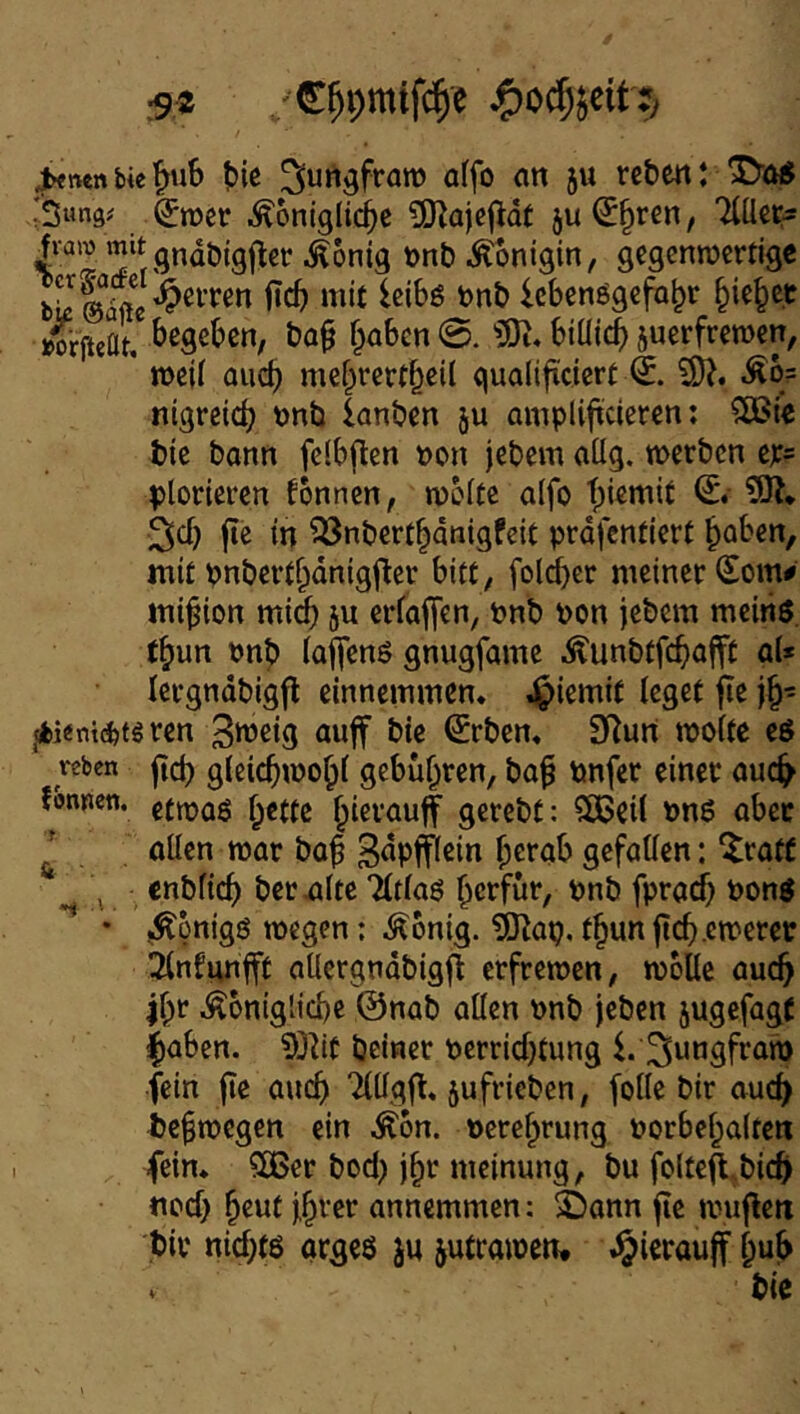 92 Chymische Hochzeit:,
denen die hub die Jungfraw also an zu reden: Das
Jung- Ewer Königliche Majestät zu Ehren, Aller-
fraw mit gnädigster König vnd Königin, gegenwertige
der Fackel Herren sich mit Leibs vnd Lebensgefahr hieher
die Gäste
vorstellt. begeben, daß haben E. M. billich zuerfrewen,
weil auch mehrertheil qualificiert E. M. Kö-
nigreich vnd Landen zu amplificieren: Wie
die dann selbsten von jedem allg. werden ex-
plorieren können, wolte also hiemit E. M.
Ich sie in Vnderthänigkeit präsentiert haben,
mit vnderthänigster bitt, solcher meiner Com-
mißion mich zu erlassen, vnd von jedem meins
thun vnd lassens gnugsame Kundtschafft al-
lergnädigst einnemmen. Hiemit leget sie jh-
hie nichts ren Zweig auff die Erden. Nun wolte es
reden sich gleichwohl gebühren, daß vnser einer auch
können. etwas hette hierauff geredt: Weil vns aber
allen war daß Zäpfflein herab gefallen: Tratt
endlich der alte Atlas herfür, vnd sprach vons
Königs wegen: König. May. thun sich ewerer
Ankunfft allergnädigst erfrewen, wölle auch
jhr Königliche Gnad allen vnd jeden zugesagt
haben. Mit deiner verrichtung L. Jungfraw
sein sie auch Allgst. zufrieden, solle dir auch
deßwegen ein Kön. verehrung vorbehalten
sein. Wer doch jhr meinung, du soltest dich
noch heut jhrer annemmen: Dann sie wusten
dir nichts arges zu zutrawen. Hierauff hub
die